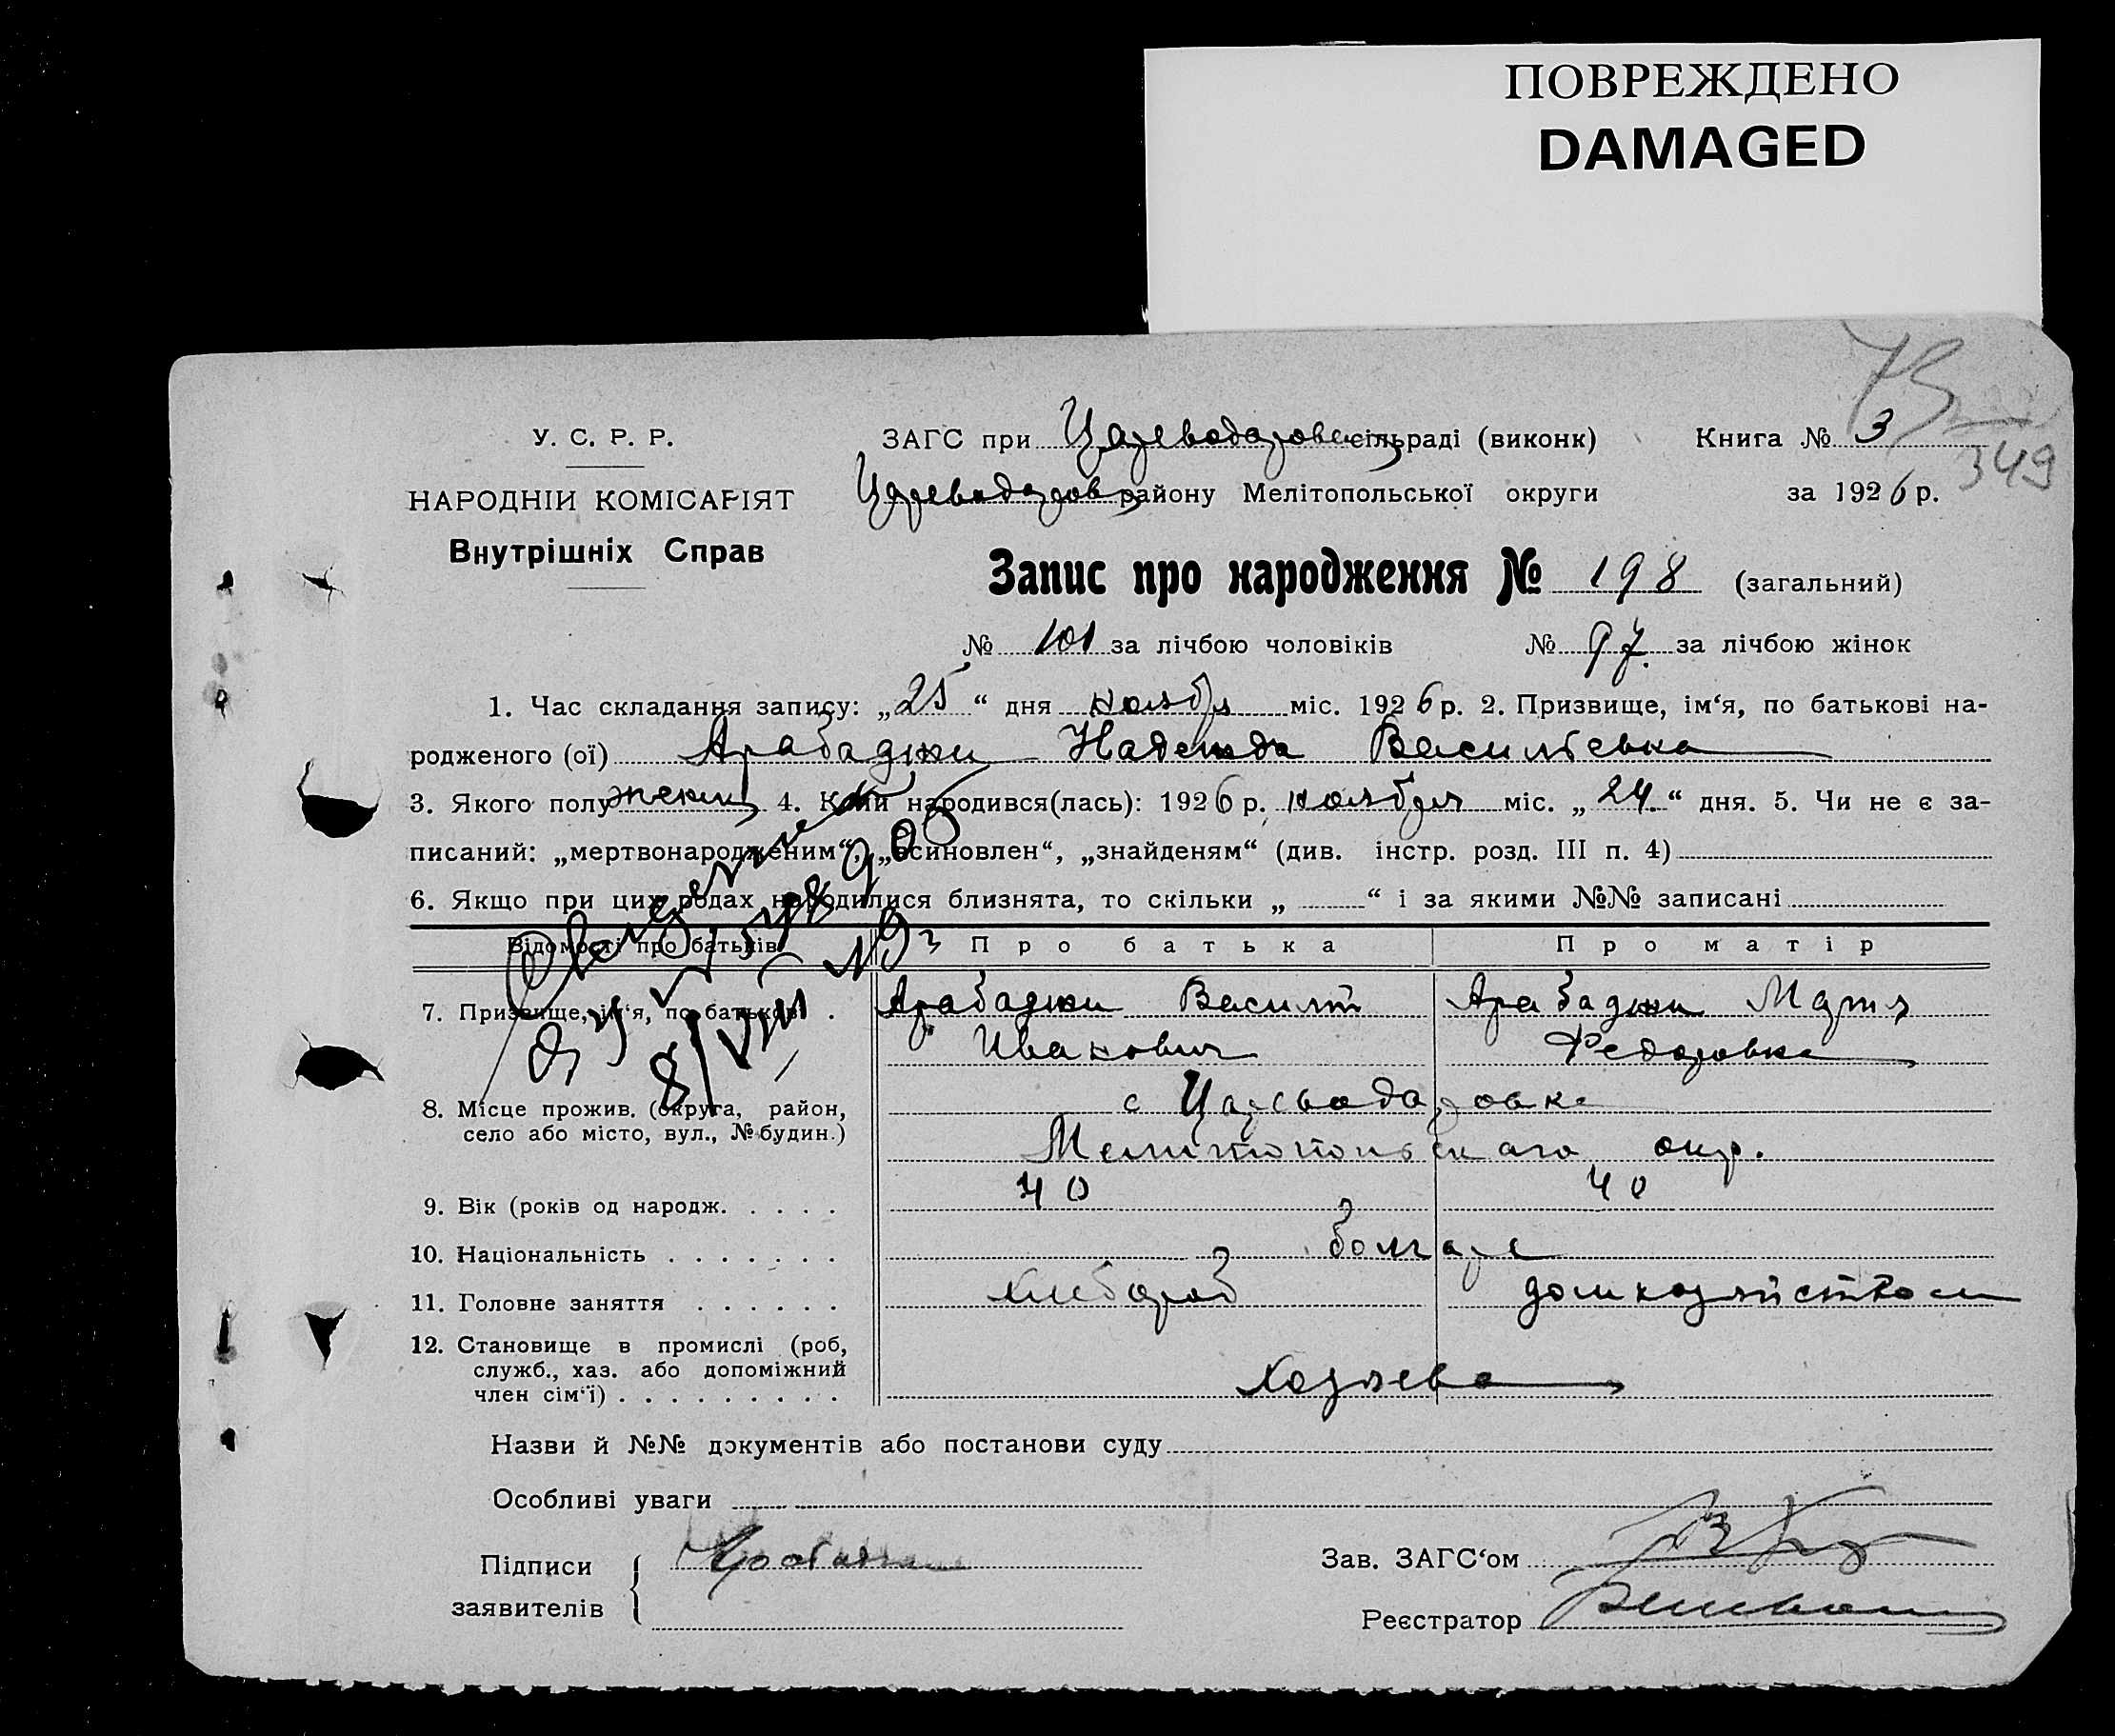 ПОВРЕЖДЕНО
DAMAGED
У. С. Р. Р.
НАРОДНІЙ КОМІСАРІЯТ
Внутрішніх Справ
ЗАГС при Цареводаровск сільраді (виконк)
Книга № 3
349
Цареводаров району Мелітопольської округи
за 1926 р.
Запис про народження № 198 (загальний)
№ 101 за лічбою чоловіків № 97 за лічбою жінок
1. Час складання запису: „25“ дня ноября міс. 1926 р. 2. Призвище, ім‘я, по батькові на-
родженого (ої) Арабаджи Надежда Васильевна
3. Якого полу женск 4. Коли народився(лась): 1926 р. ноября міс. „24“ дня. 5. Чи не є за-
писаний: „мертвонародженим“, „всиновлен“, „знайденям“ (див. інстр. розд. III п. 4)
6. Якщо при цих родах народилися близнята, то скільки „ “ і за якими №№ записані
Відомості про батьків Про батька Про матір
7. Призвище, ім‘я, по батькові . Арабаджи Василий Арабаджи Мария
Иванович Федоровна
8. Місце прожив. (округа, район, село або місто, вул., № будин.) с Цареводаровка
Мелитопольскаго окр.
9. Вік (років од народж. . . . . 40 40
10. Національність . . . . . . . болгаре
11. Головне заняття . . . . . . хлебороб домхозяйством
12. Становище в промислі (роб,
служб., хаз. або допоміжний
член сім‘ї) . . . . . . . . . хозяева
Назви й №№ документів або постанови суду
Особливі уваги
Підписи
заявителів
Зав. ЗАГС‘ом
Реєстратор